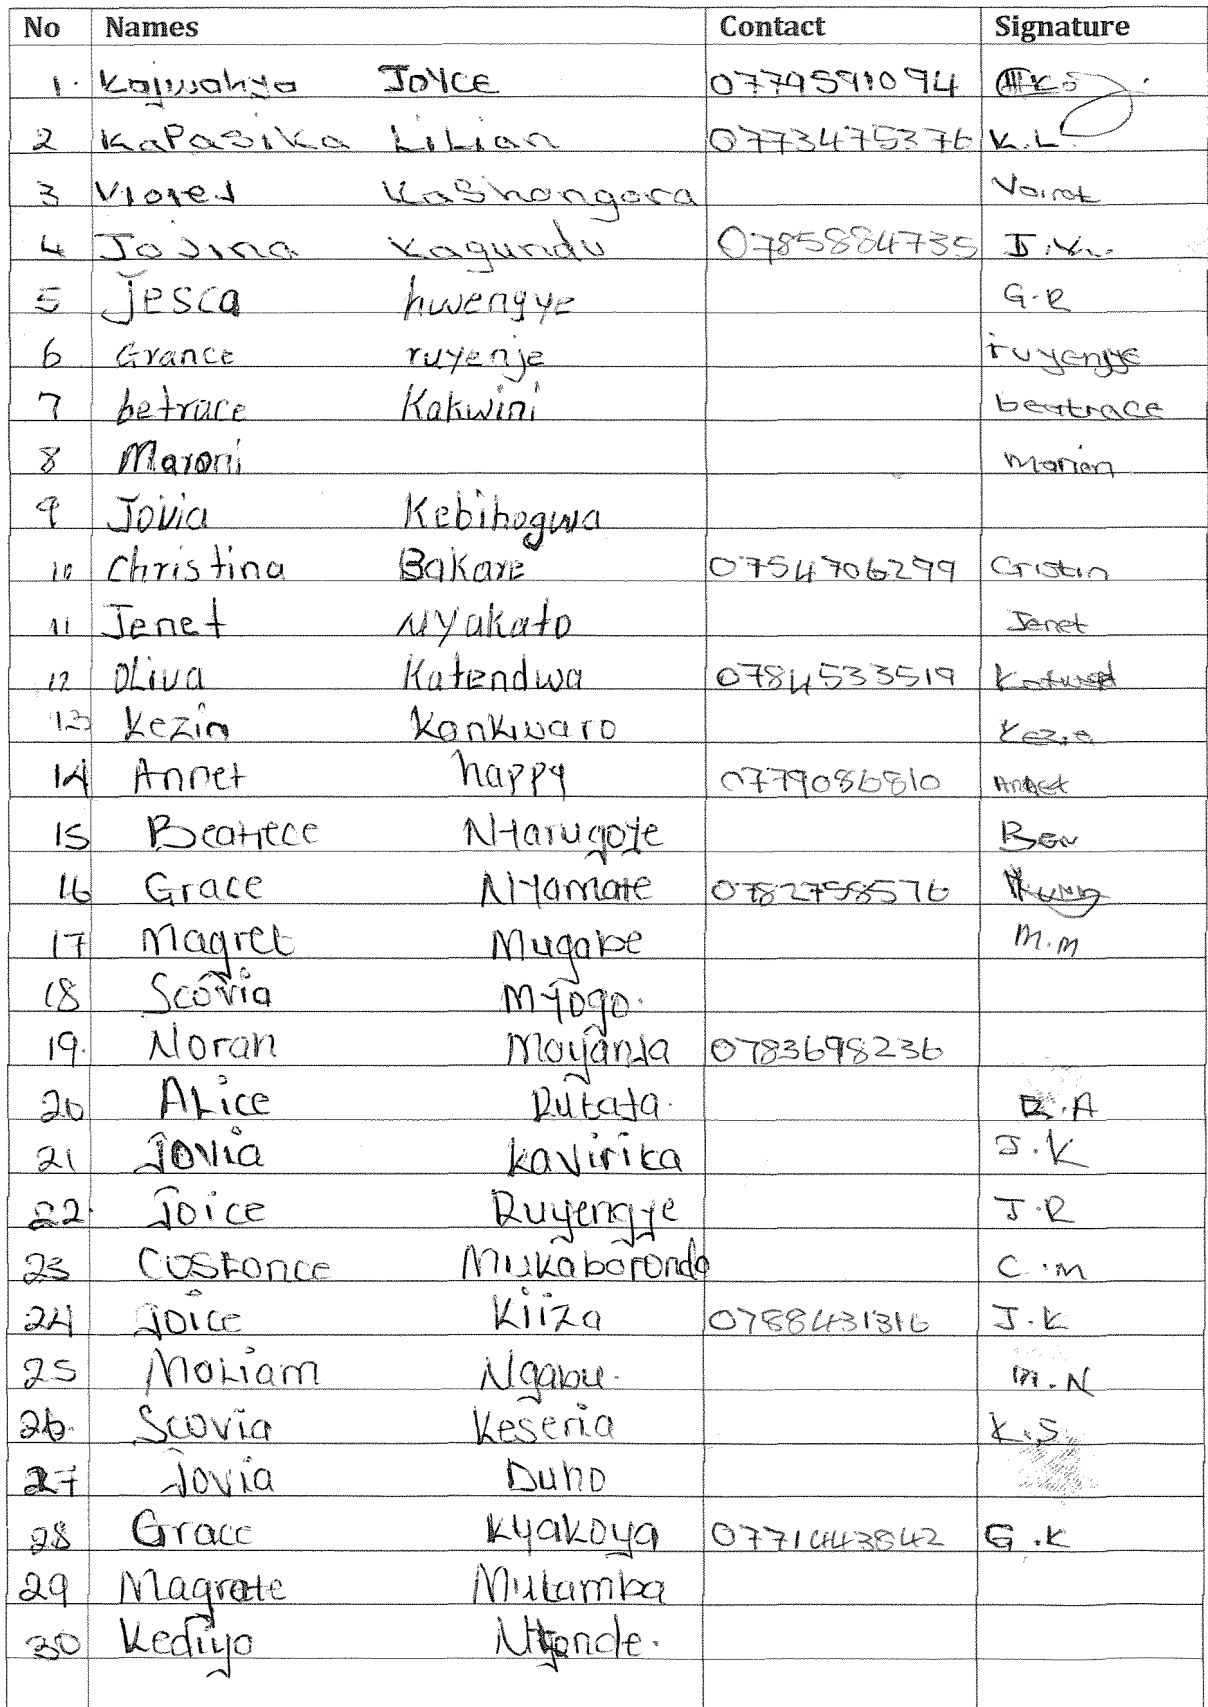 No Names Contact Signature
1. Kajwahya JOYCE 0779591094
2 KaPasika LiLian 0773475376 K.L
3 Violet KaShongora Voirot
4 Jovina Kagundu 0785884735 J.K.
5 Jesca hwengye G.R
6 Grance ruyenje ruyengye
7 betrace Kakwini beatrace
8 Maroni Marion
9 Jovia Kebihogwa
10 Christina Bakare 0754706299 Cristin
11 Jenet NYakato Janet
12 OLiva Katendwa 0784533519
13 Kezia Kankwaro Kezia
14 Annet happy 0779086810 Annet
15 Beatrece Ntarugoye Ben
16 Grace NYamate 0782758576
17 Magret Mugabe M.M
18 Scovia MYogo.
19. Noran Moyanja 0783698236
20 ALice Rutata. R.A
21 Jovia Kavirika J.K
22. Joice Ruyengye J.R
23 Costance Mukaboronda C.M
24 Joice Kiiza 0788431316 J.K
25 MoLiam Ngabu. M.N
26. Scovia Keseria K.S.
27 Jovia Duho
28 Grace KYakoya 0771443842 G.K
29 Magrete Mutamba
30 Kediyo